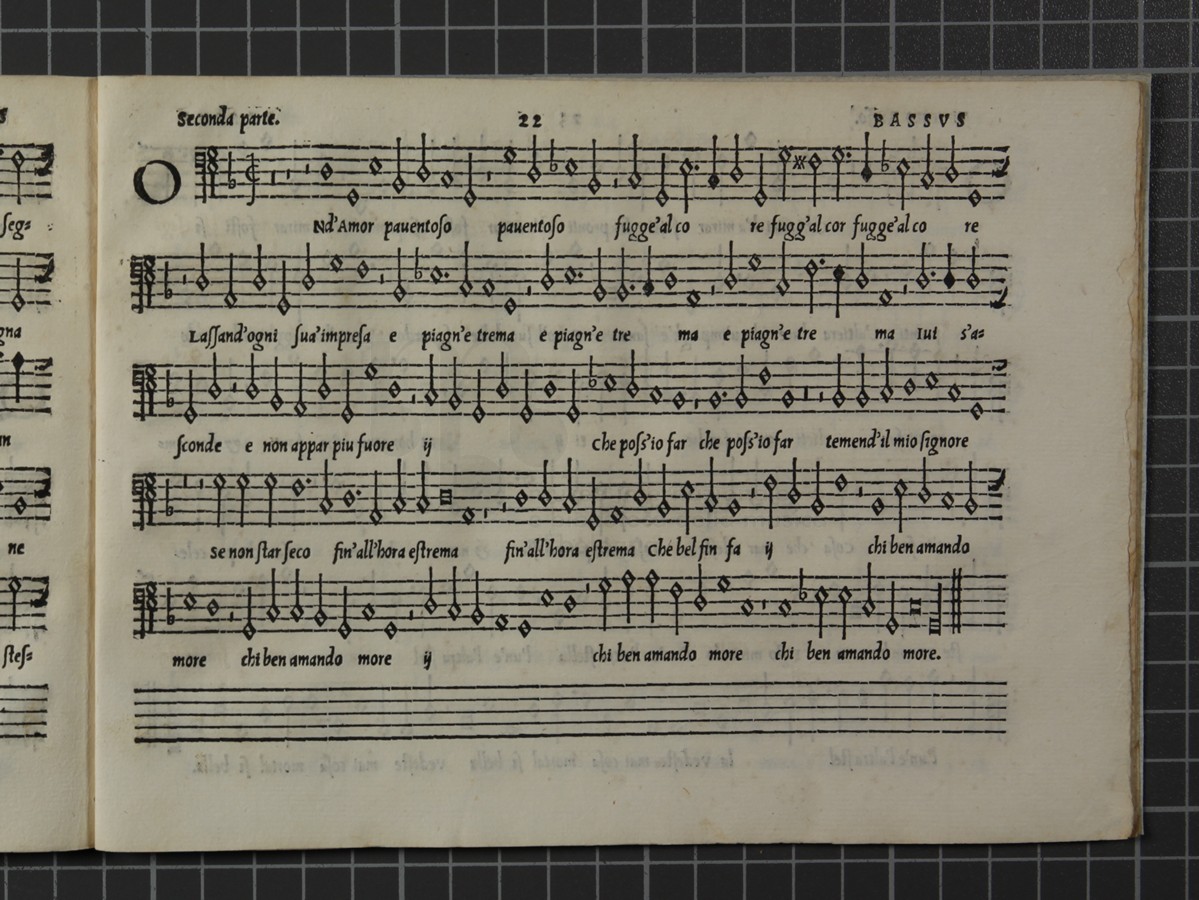 Seconda parte. 22 BASSVS
ONd'Amor pauentoso pauentoso fugge'al co re fugg'al cor fugge'al co re
Laſſand'ogni ſua'impreſa e piagn'e trema e piagn'e tre ma e piagn'e tre ma Iui s'a=
ſconde e non appar piu fuore ij Che poſs'io far che poſs'io far temend'il mio ſignore
Se non ſtar ſeco fin'all'hora eſtrema fin'all'hora eſtrema Che bel fin fa ij chi ben amando
more chi ben amando more ij chi ben amando more chi ben amando more.
S
ſeg=
gna
ne
ſteſ=